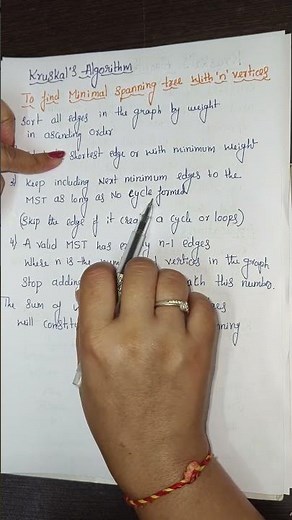 Kruskal's Algorithm
To find Minimal spanning tree with 'n' vertices
Sort all edges in the graph by weight
in ascanding order
shortest edge or with minimum weight
3) Keep including Next minimum edges to the
MST as long as No cycle formed
(Skip the edge if it a cycle or loops)
4) A valid MST has n-1 edges
Where n is the vertices in the graph
Stop this number.
The sum of
will